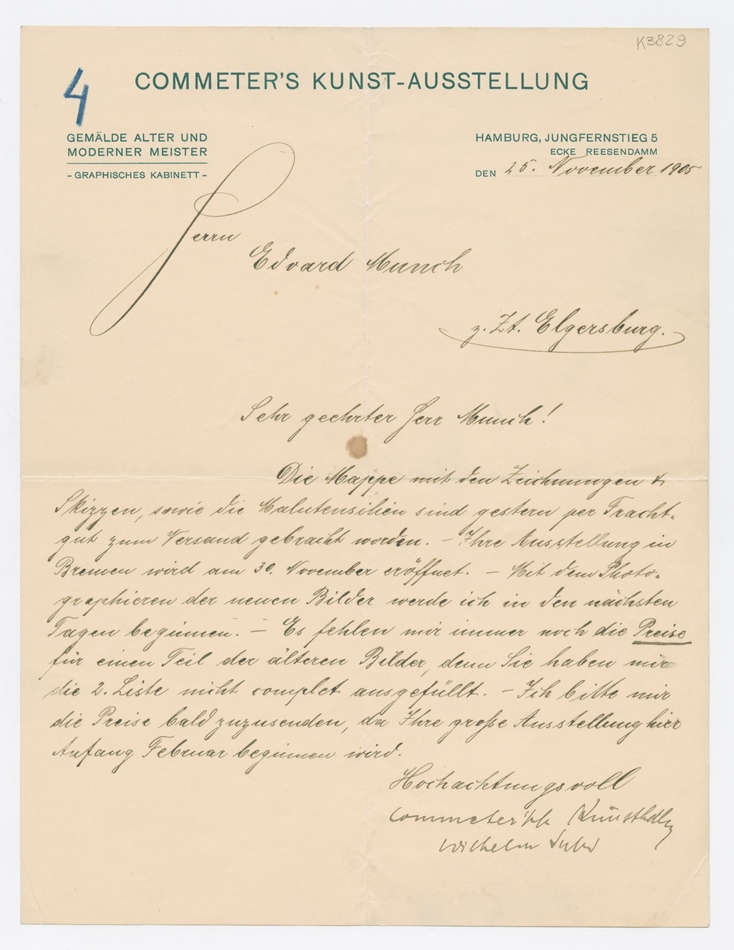 K3829
4
COMMETER'S KUNST-AUSSTELLUNG
GEMÄLDE ALTER UND
MODERNER MEISTER
- GRAPHISCHES KABINETT -
HAMBURG, JUNGFERNSTIEG 5
ECKE REESENDAMM
DEN 25. November 1905
Herrn
Edvard Munch
z. Zt. Elgersburg.
Sehr geehrter Herr Munch!
Die Mappe mit den Zeichnungen &
Skizzen, sowie die Malutensilien sind gestern per Fracht-
gut zum Versand gebracht worden. - Ihre Ausstellung in
Bremen wird am 30. November eröffnet. - Mit dem Photo-
graphieren der neuen Bilder werde ich in den nächsten
Tagen beginnen. - Es fehlen mir immer noch die Preise
für einen Teil der älteren Bilder, denn Sie haben mir
die 2. Liste nicht complet ausgefüllt. - Ich bitte mir
die Preise bald zuzusenden, da Ihre große Ausstellung hier
Anfang Februar beginnen wird.
Hochachtungsvoll
Commeter'sche Kunsthdlg
Wilhelm Suhr